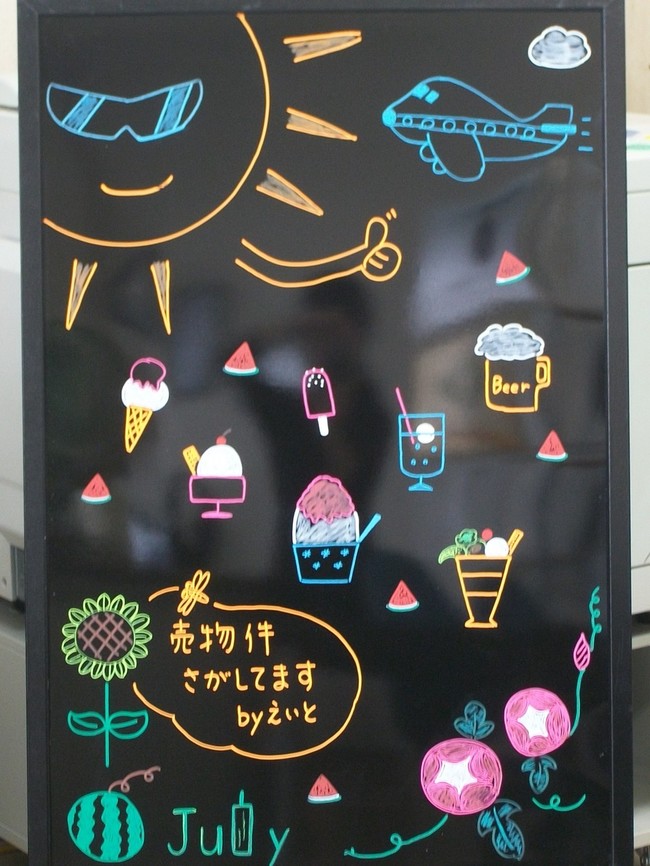 Beer
売物件
さがしてます
byえいと
July